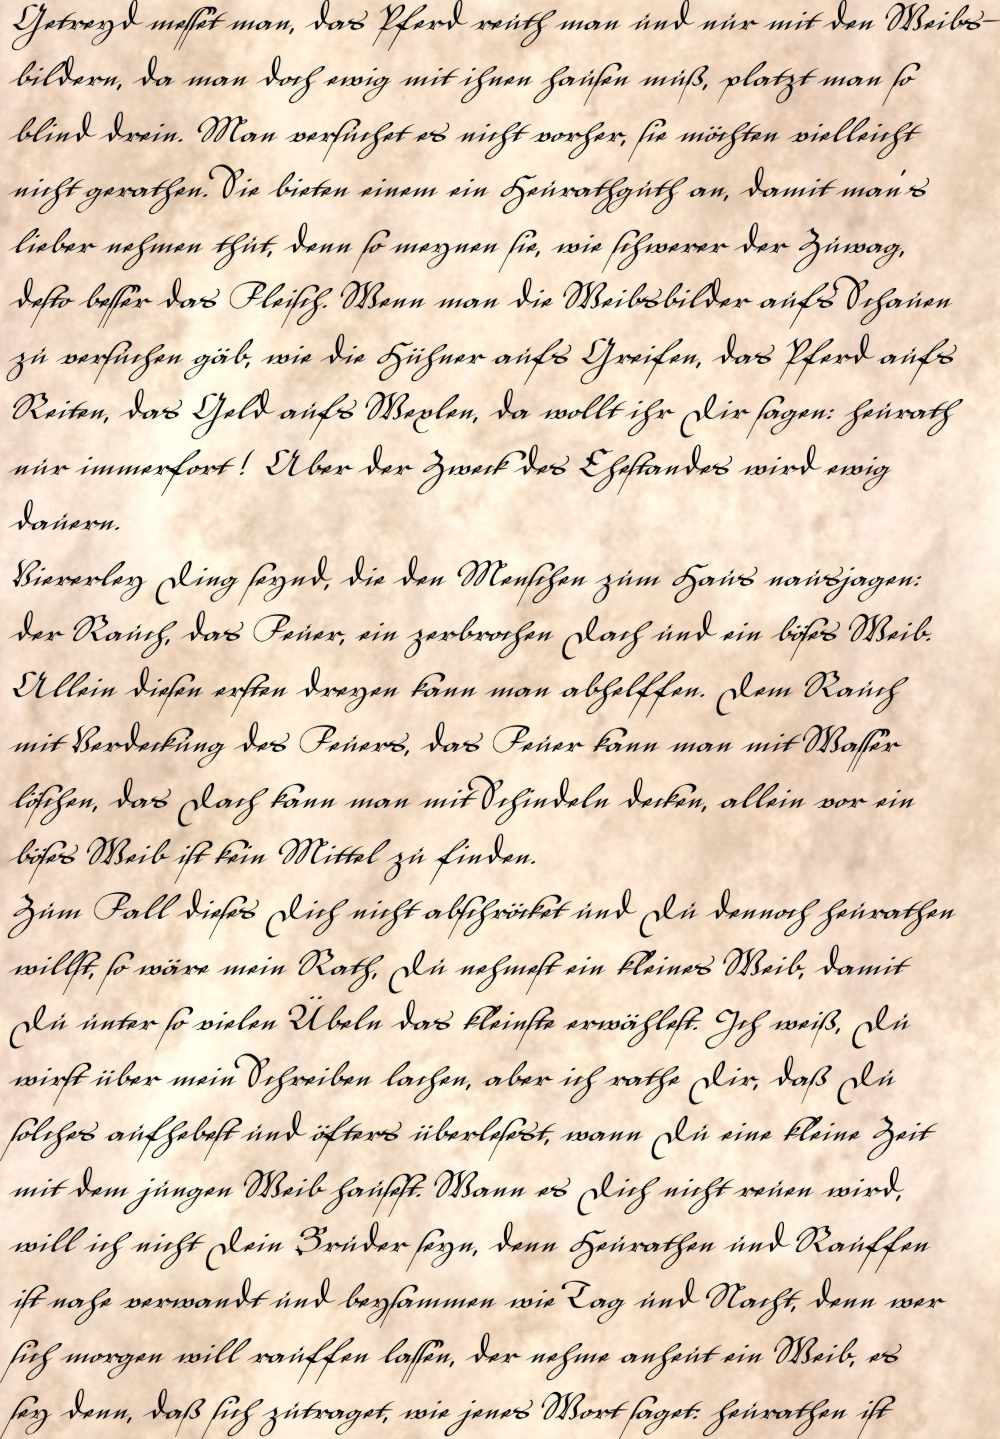 Getreyd messet man, das Pferd reuth man und nur mit den Weibs-
bildern, da man doch ewig mit ihnen hausen muß, platzt man so
blind drein. Man versuchet es nicht vorher, sie möchten vielleicht
nicht gerathen. Sie bieten einem ein Heurathguth an, damit man's
lieber nehmen thut, denn so meynen sie, wie schwerer der Zuwag,
desto besser das Fleisch. Wenn man die Weibsbilder aufs Schauen
zu versuchen gäb, wie die Hühner aufs Greifen, das Pferd aufs
Reiten, das Geld aufs Wexlen, da wollt ihr Dir sagen: heurath
nur immerfort! Aber der Zweck des Ehestandes wird ewig
dauern.
Viererley Ding seynd, die den Menschen zum Haus nausjagen:
der Rauch, das Feuer, ein zerbrochen Dach und ein böses Weib.
Allein diesen ersten dreyen kann man abhelffen. Dem Rauch
mit Verdeckung des Feuers, das Feuer kann man mit Wasser
löschen, das Dach kann man mit Schindeln decken, allein vor ein
böses Weib ist kein Mittel zu finden.
Zum Fall dieses Dich nicht abschröcket und Du dennoch heurathen
willst, so wäre mein Rath, Du nehmest ein kleines Weib, damit
Du unter so vielen Übeln das kleinste erwählest. Ich weiß, Du
wirst über mein Schreiben lachen, aber ich rathe Dir, daß Du
solches aufhebest und öfters überlesest, wann Du eine kleine Zeit
mit dem jungen Weib hausest. Wann es Dich nicht reuen wird,
will ich nicht Dein Bruder seyn, denn Heurathen und Rauffen
ist nahe verwandt und beysammen wie Tag und Nacht, denn wer
sich morgen will rauffen lassen, der nehme anheut ein Weib, es
sey denn, daß sich zutraget, wie jenes Wort saget: heurathen ist